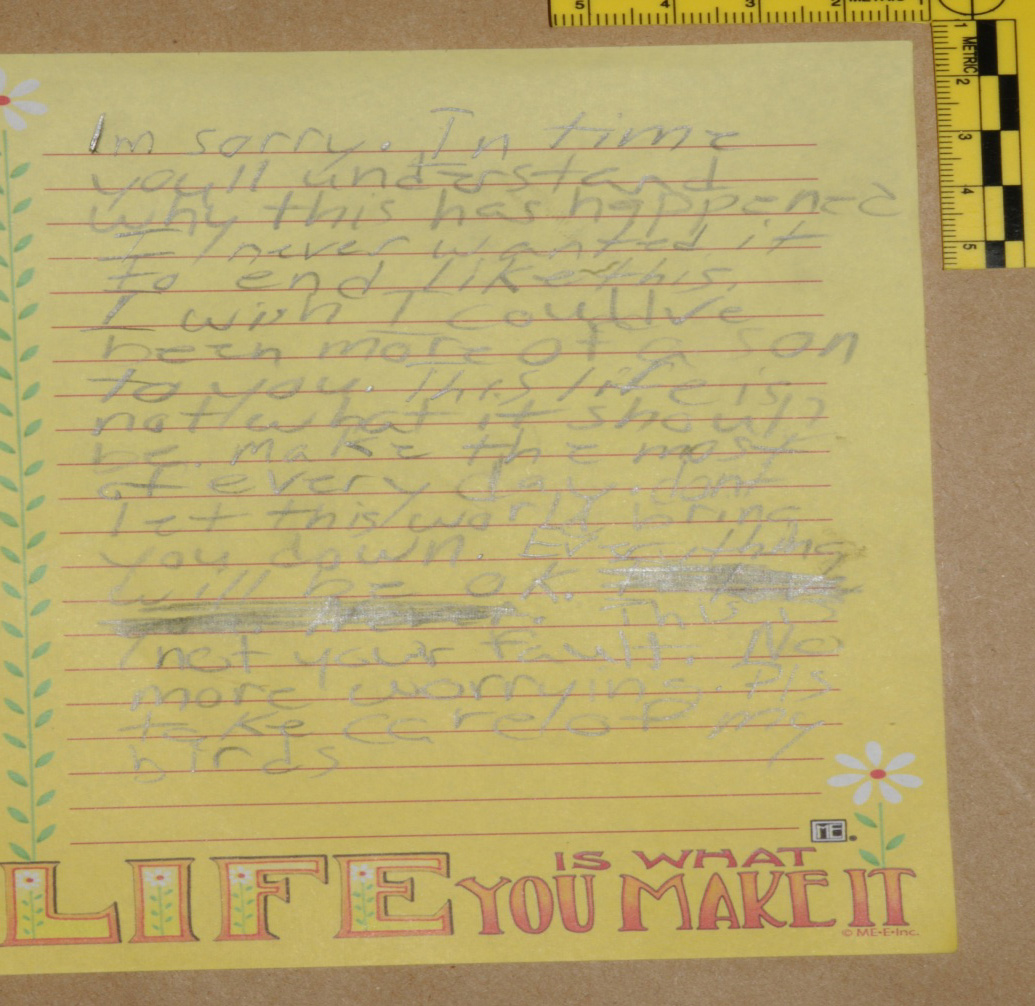 5 4 3 2 METRIC 1
1 METRIC 2 3 4 5
Im sorry. In time
you'll understand
why this has happened
I never wanted it
to end like this.
I wish I could've
been more of a son
to you. This life is
not what it should
be. Make the most
of every day. dont
let this world bring
you down. Everything
will be ok.
This is
not your fault. No
more worrying. Pls
take care of my
birds
ME.
LIFE IS WHAT
YOU MAKE IT
© ME-E-Inc.